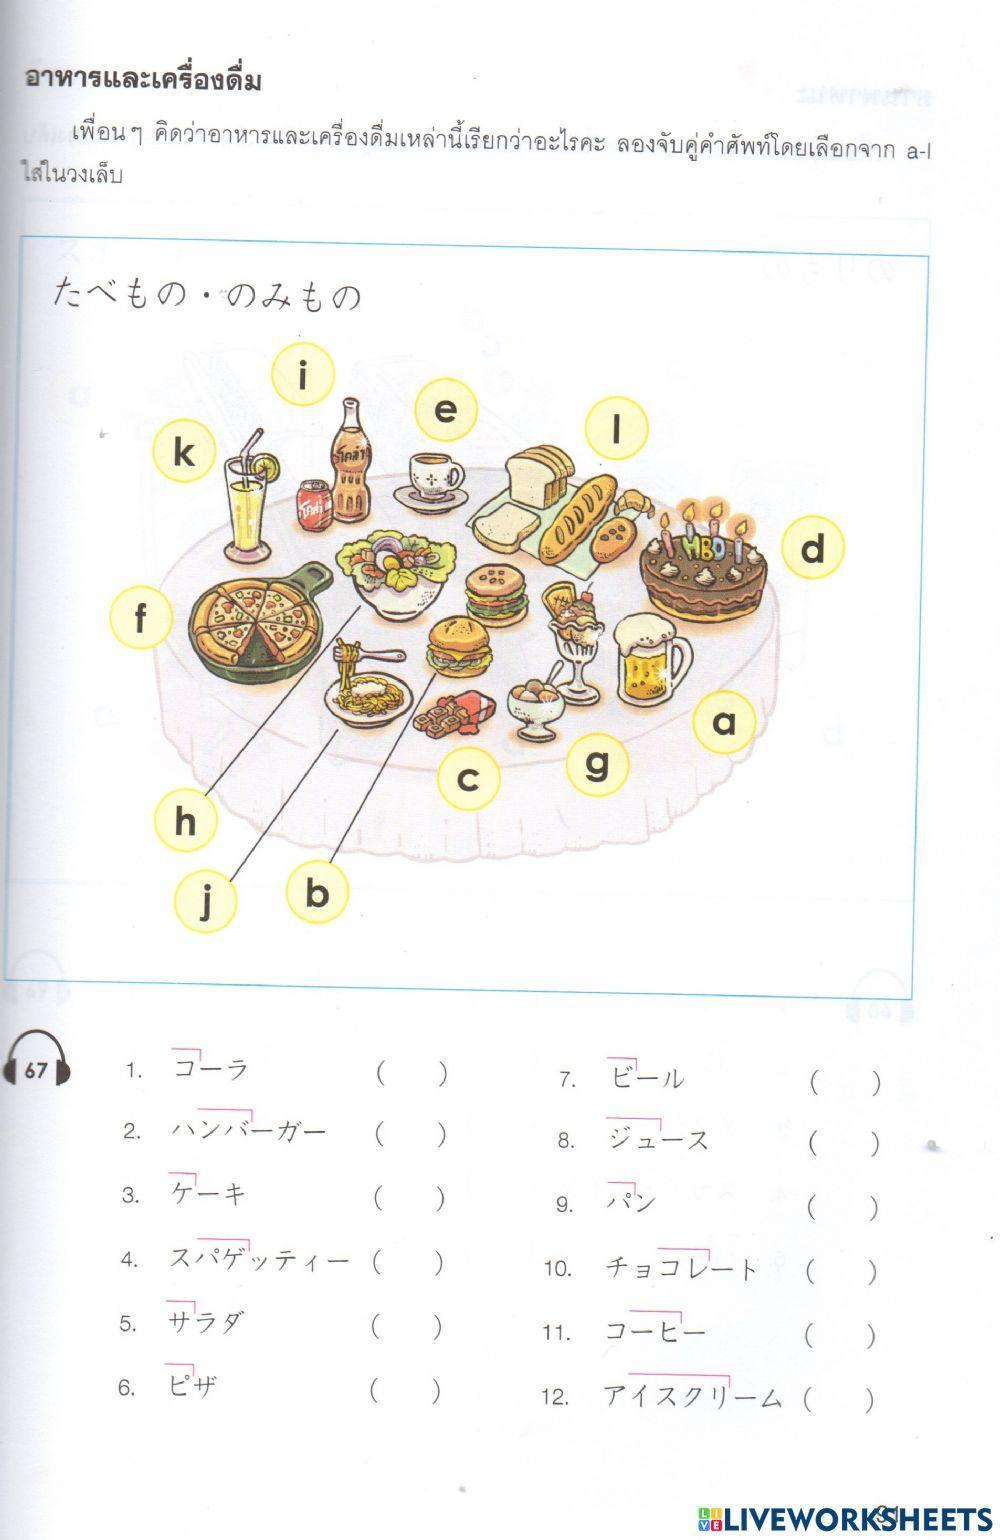 อาหารและเครื่องดื่ม
เพื่อนๆ คิดว่าอาหารและเครื่องดื่มเหล่านี้เรียกว่าอะไรคะ ลองจับคู่คำศัพท์โดยเลือกจาก a-l
ใส่ในวงเล็บ
たべもの・のみもの
i
e
l
k
โคล่า
โคล่า
HBD
d
f
a
g
c
h
j
b
67
1. コーラ ( )
2. ハンバーガー ( )
3. ケーキ ( )
4. スパゲッティー ( )
5. サラダ ( )
6. ピザ ( )
7. ビール ( )
8. ジュース ( )
9. パン ( )
10. チョコレート ( )
11. コーヒー ( )
12. アイスクリーム ( )
LIVEWORKSHEETS